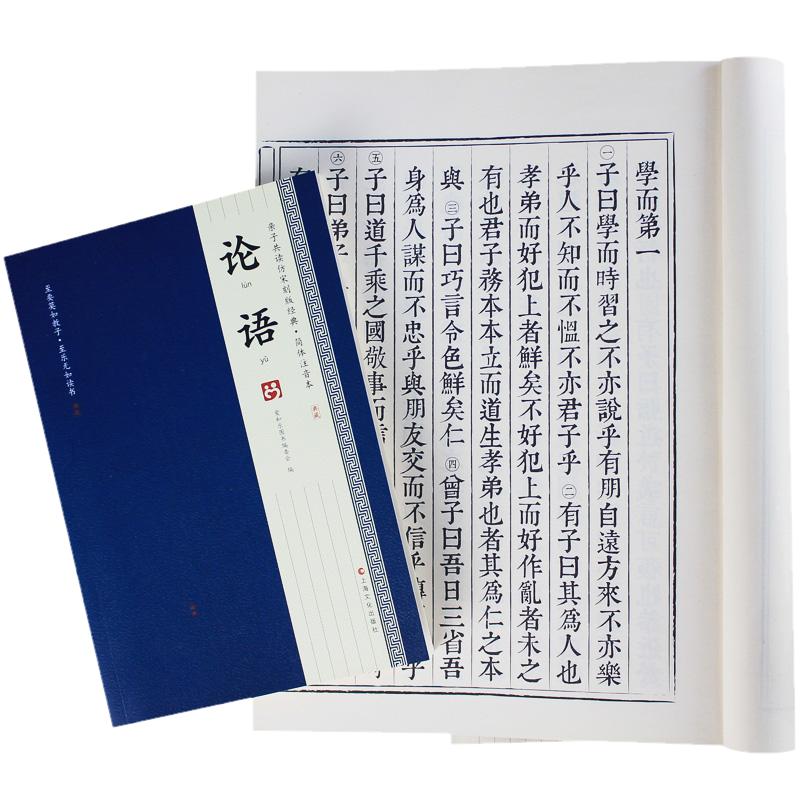 學而第一
㊀子曰學而時習之不亦說乎有朋自遠方來不亦樂
乎人不知而不慍不亦君子乎㊁有子曰其爲人也
孝弟而好犯上者鮮矣不好犯上而好作亂者未之
有也君子務本本立而道生孝弟也者其爲仁之本
與㊂子曰巧言令色鮮矣仁㊃曾子曰吾日三省吾
身爲人謀而不忠乎與朋友交而不信乎傳 乎
㊄子曰道千乘之國敬事而信
㊅子曰弟
亲子共读仿宋刻版经典·简体注音本
典藏
论
lún
语
yǔ
爱和乐图书编委会 编
上海文化出版社
至要莫如教子·至乐无如读书